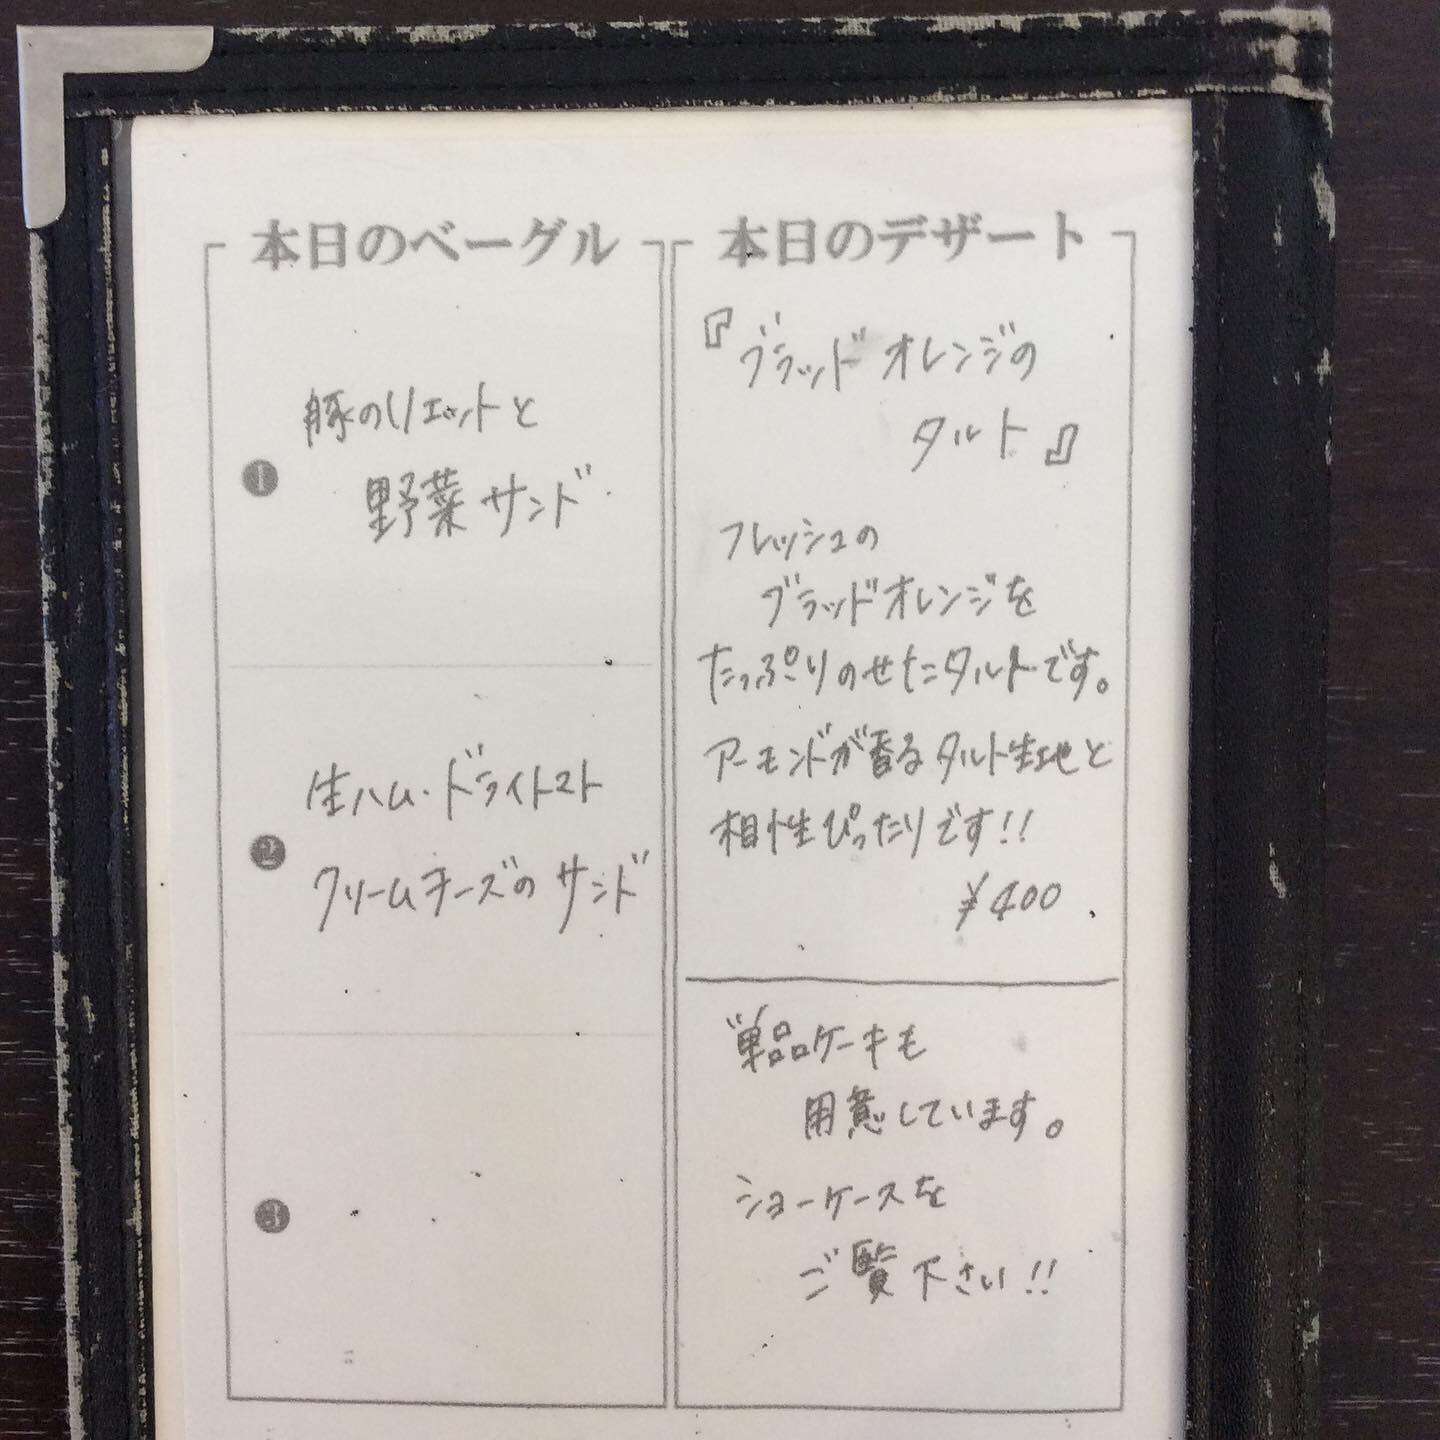 本日のベーグル
❶
豚のリエットと
野菜サンド
❷
生ハム・ドライトマト
クリームチーズのサンド
❸
本日のデザート
『ブラッドオレンジの
タルト』
フレッシュの
ブラッドオレンジを
たっぷりのせたタルトです。
アーモンドが香るタルト生地と
相性ぴったりです!!
¥400
単品ケーキも
用意しています。
ショーケースを
ご覧下さい!!